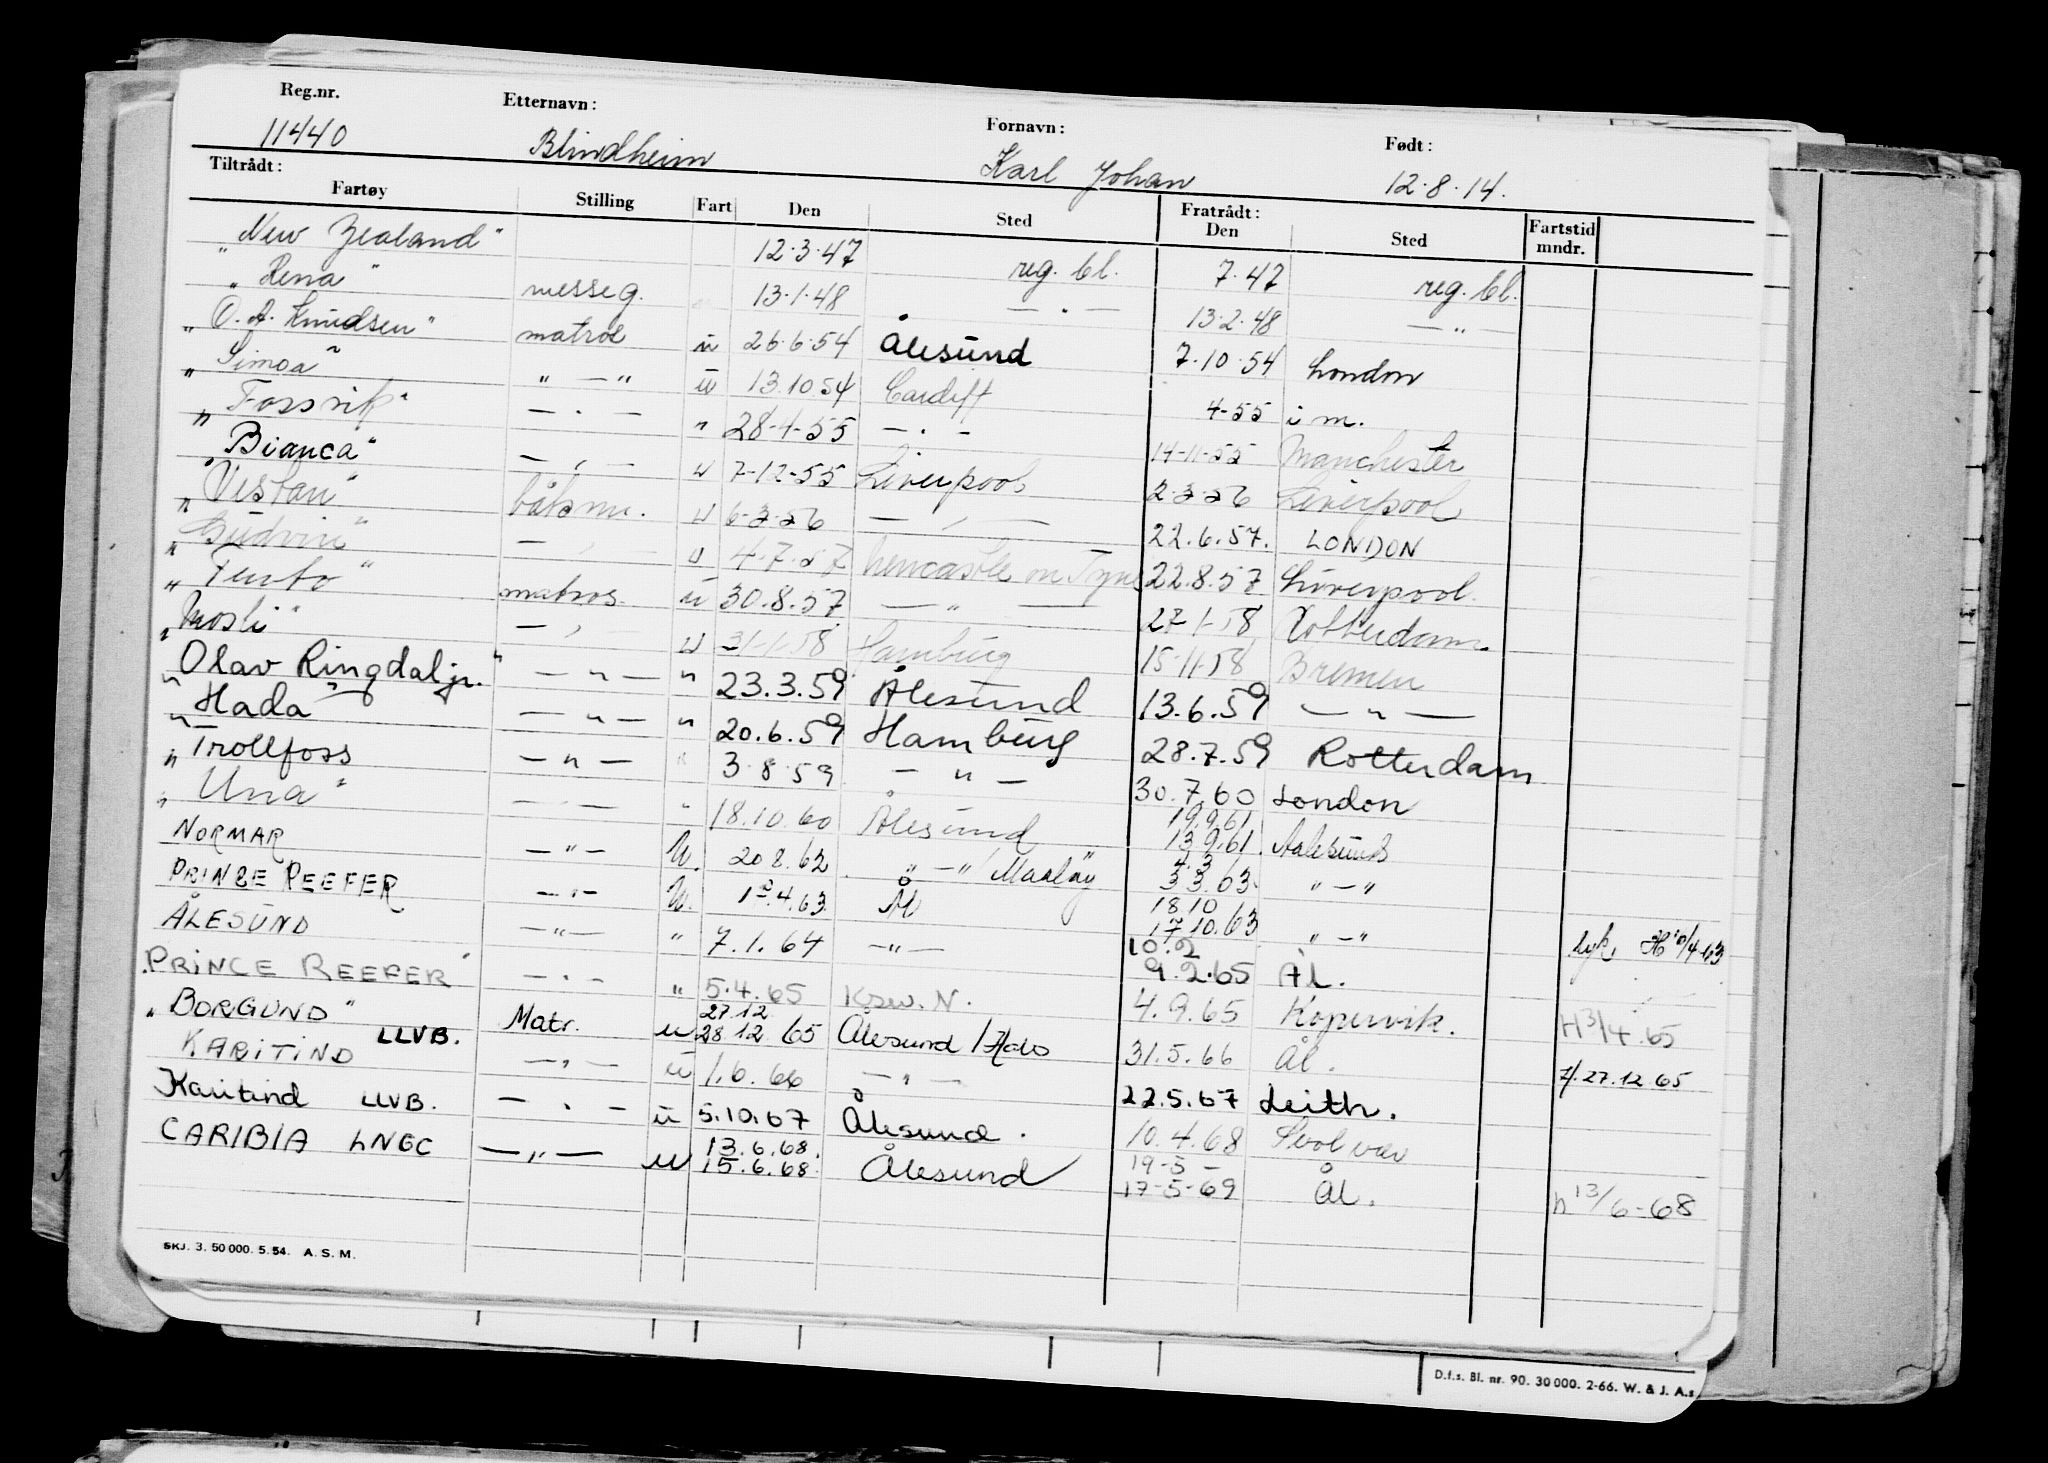 Reg.nr. Etternavn: Fornavn: Født:
11440 Blindheim Karl Johan 12.8.14.
Tiltrådt: Fratrådt:
Fartøy Stilling Fart Den Sted Den Sted Fartstid mndr.
"New Zealand" 12.3.47 reg. bl. 7.47 reg. bl.
"Rena" messeg. 13.1.48 — " — 13.2.48 — " —
"O. A. Knudsen" matros u 26.6.54 Ålesund 7.10.54 London
"Simoa" " — " u 13.10.54 Cardiff 4-55 i m.
"Fossvik" — " — " 28-4-55 — " — 14-11-55 Manchester
"Bianca" — " — u 7-12-55 Liverpool 2-3-56 Liverpool
"Vestan" båtsm. u 6-3-56 — " — 22.6.57. LONDON
"Gudvin" — " — u 4-7-57 Newcastle on Tyne 22.8.57 Liverpool.
matros u 30.8.57 — " — 27-1-58 Rotterdam
"Mosli" — " — u 31-1-58 Hamburg 15-11-58 Bremen
"Olav Ringdal jr." — " — " 23.3.59 Ålesund 13.6.59 — " —
"Hada" — " — " 20.6.59 Hamburg 28.7.59 Rotterdam
"Trollfoss — " — " 3.8.59 — " — 30.7.60 London
"Una" — " — " 18.10.60 Ålesund 19.9.61 13.9.61 Aalesund
NORMAR — " — U. 20.8.62 " — " / Maaløy 4.3 3.3.63. " — "
PRINSE REEFER — " — U. 1.4.63 Ål 18.10 17.10.63 " — "
ÅLESUND — " — " 7.1.64 — " — 10.2 9.2.65 Ål. H 10/4-63
"PRINCE REEFER" — " — " 5.4.65 Krsu. N. 4.9.65 Kopervik. H 3/4.65
"BORGUND" LLVB. Matr. u 27.12 28.12.65 Ålesund 31.5.66 Ål. H. 27.12.65
KARITIND — " — u 1.6.66 — " — 22.5.67 Leith.
Karitind LLVB. — " — u 5.10.67 Ålesund. 10.4.68 Svolvær
CARIBIA LNGC — " — u 13.6.68. 15.6.68. Ålesund 19-5 - 17-5-69 Ål. h 13/6-68
SKJ. 3. 50 000. 5. 54. A. S. M.
D.f.s. Bl. nr. 90. 30 000. 2-66. W. & J. A.s